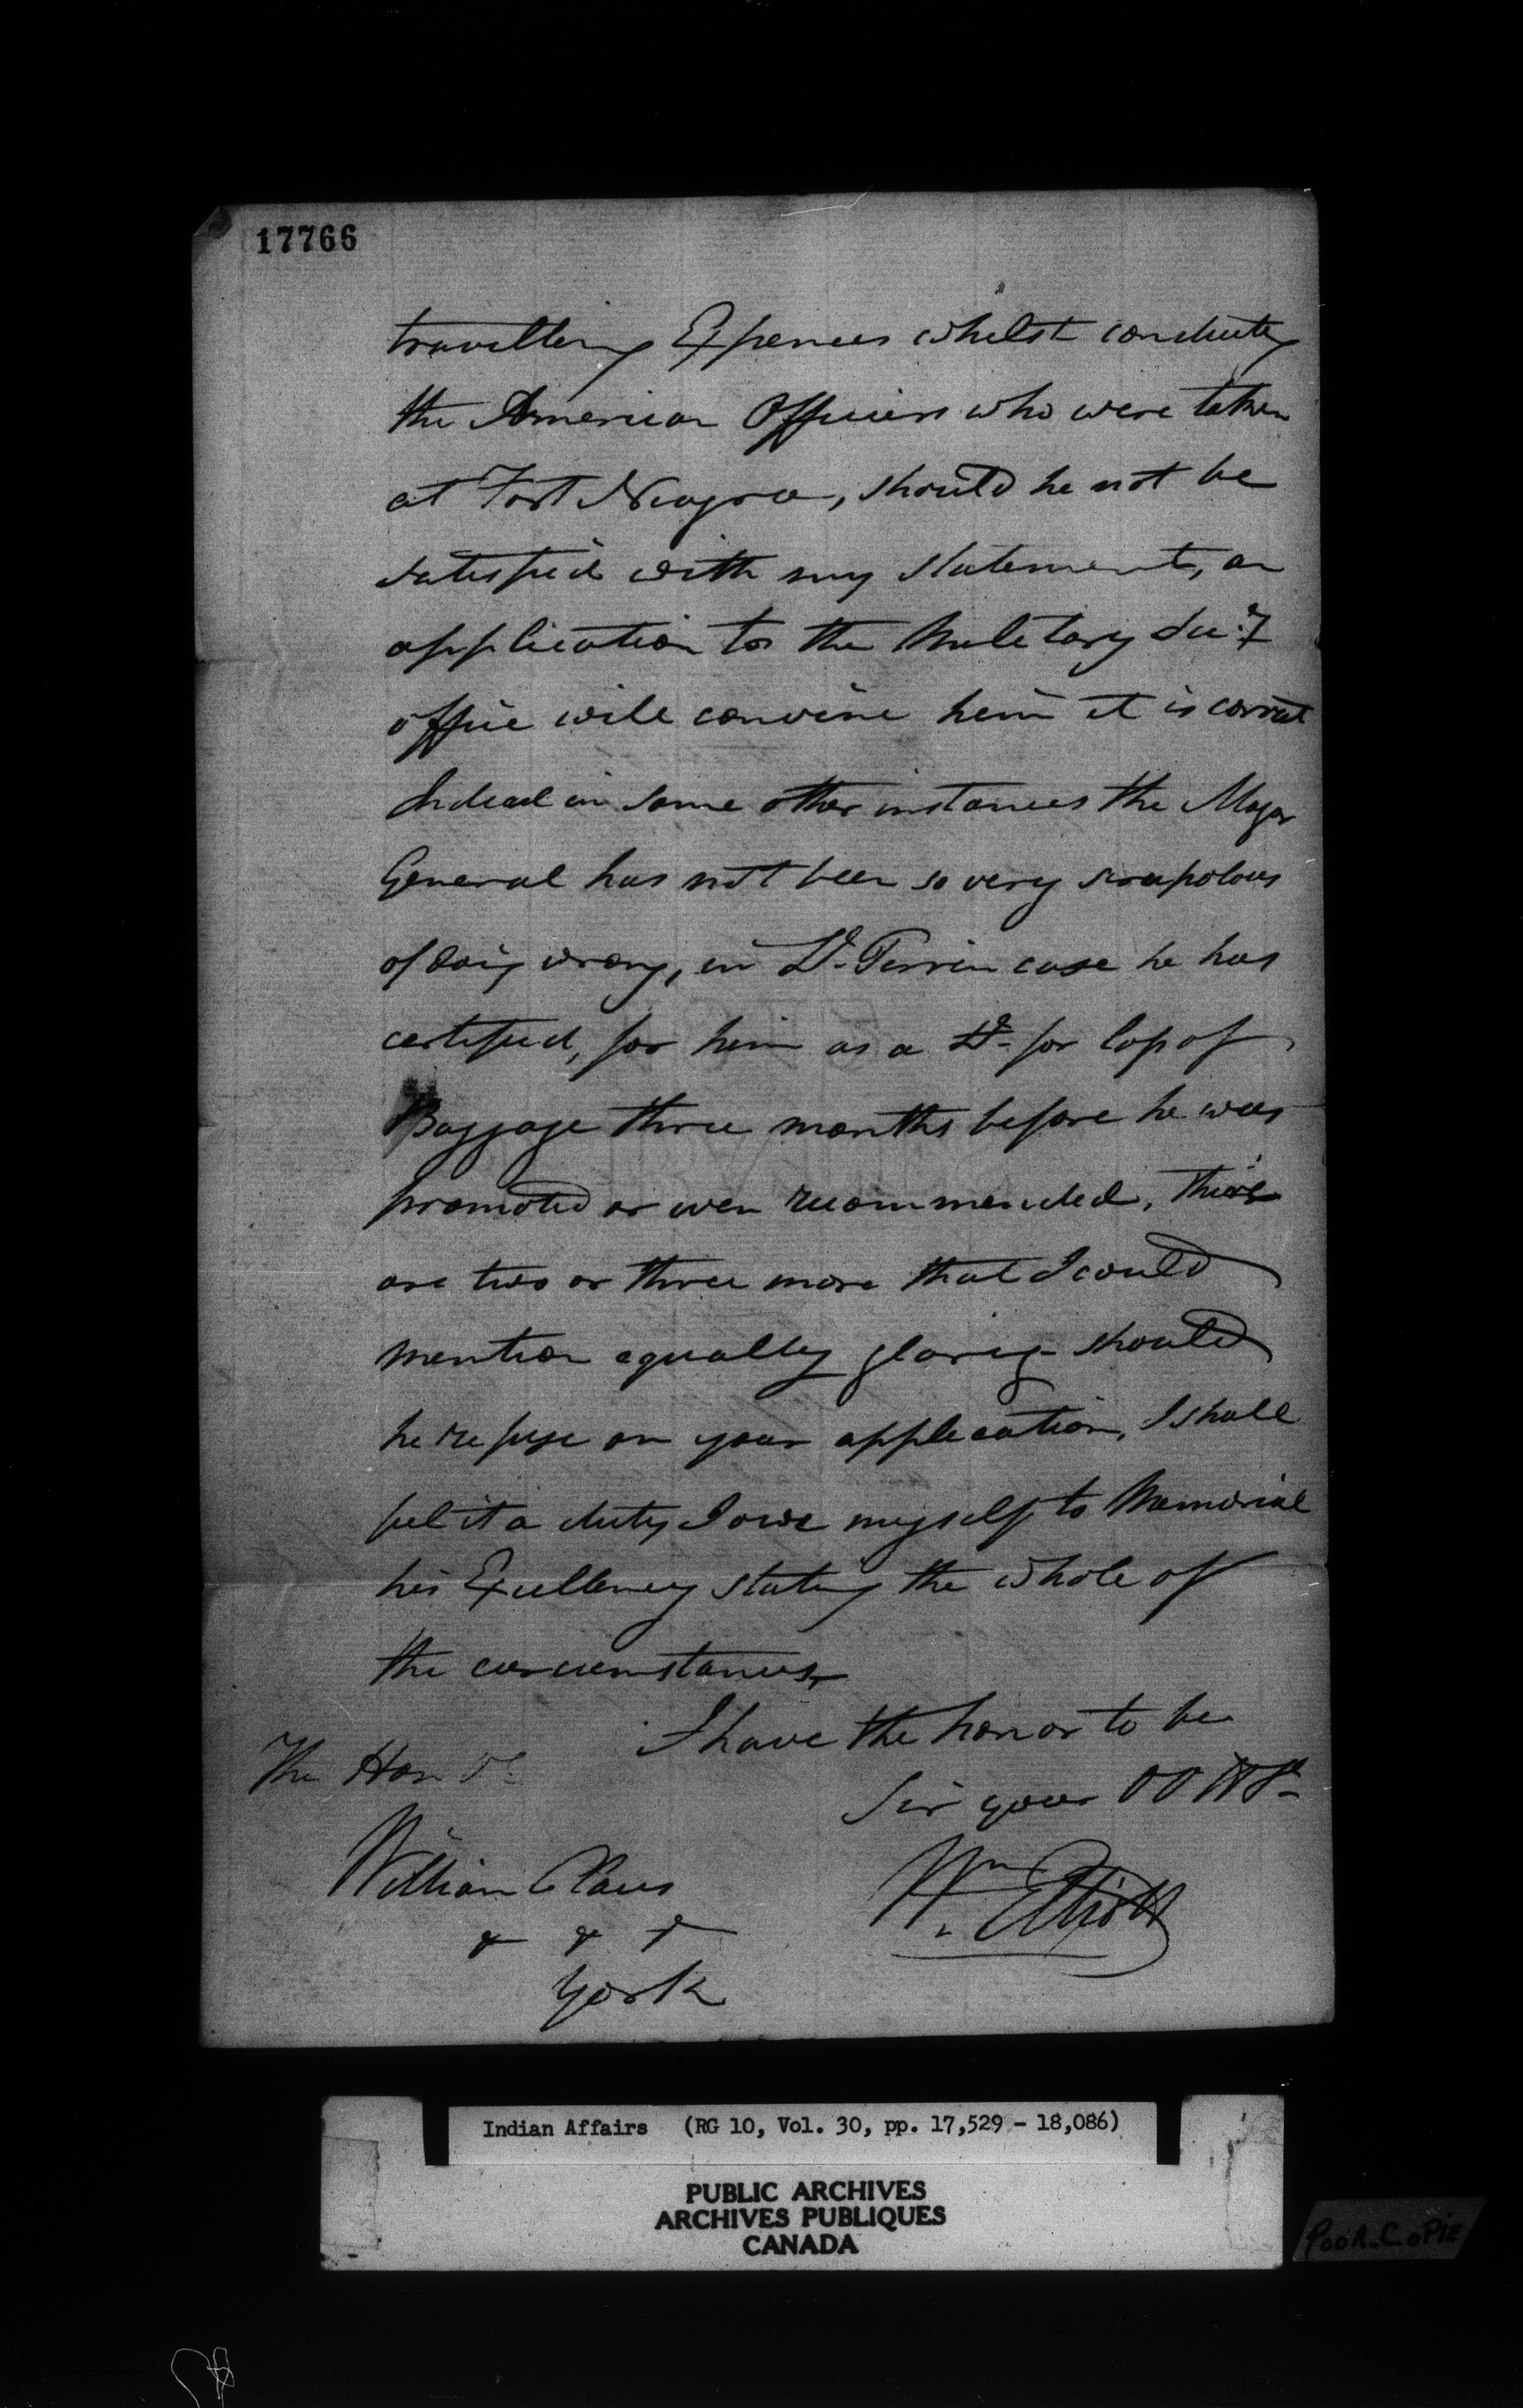 17766
travelling Expences whilst conducting
the American Officers who were taken
at Fort Niagra, should he not be
satisfied with my statement, an
application to the Military Secy
office will convince him it is correct
Indeed in some other instances the Major
General has not been so very scrupolous
of doing wrong, in Lt. Perrin case he has
certified, for him as a Lt. for loss of
Baggage three months before he was
promoted or even recommended, there
are two or three more that I could
mention equally glaring should
he refuse on your application, I shall
feel it a duty I owe myself to Memorial
his Excellency stating the whole of
the circumstances,
I have the honor to be
Sir your
The Honble
William Claus
& & &
York
Wm Elliott
Indian Affairs (RG 10, Vol. 30, pp. 17,529 - 18,086)
PUBLIC ARCHIVES
ARCHIVES PUBLIQUES
CANADA
POOR-COPIE